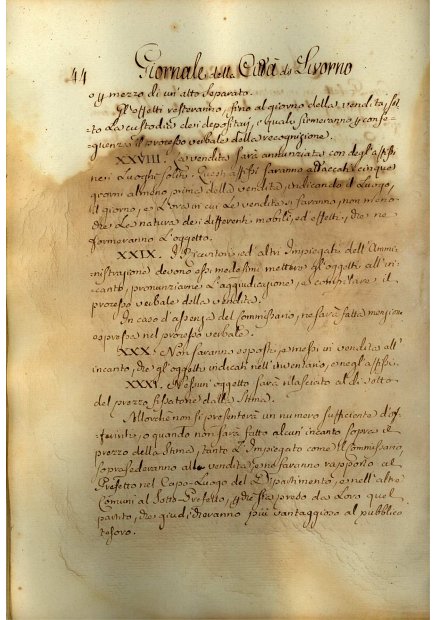 44 Giornale della Città di Livorno
o p mezzo di un'atto separato.
Gl'effetti resteranno, fino al giorno della vendita, sot-
to La custodia dei depositarj, e quali firmeranno p conse-
guenza il processo verbale della recognizione.
XXVIII. La vendita sarà annunziata con degl'affissi
ne i Luoghi soliti. Questi affissi saranno attaccati cinque
giorni almeno prima della vendita, indicando il Luogo,
il giorno, e L'ora in cui Le vendite si faranno, non meno
che La natura dei differenti mobili, ed effetti, che ne
formeranno L'oggetto.
XXIX. I Ricevitori ed altri Impiegati dell'Ammi-
nistrazione devono essi medesimi mettere gl'oggetti all'in-
canto, pronunziarne L'aggiudicazione, e compilare il
processo verbale della vendita.
In caso d'assenza del Commissario, ne sarà fatta menzione
espressa nel processo verbale.
XXX. Non saranno esposti, e messi in vendita all'
incanto, che gl'oggetti indicati nell'inventario, e negl'affissi.
XXXI. Nessun'oggetto sarà rilasciato al di sotto
del prezzo fissatone dalla Stima.
Allorchè non si presenterà un numero sufficiente d'of-
ferenti, o quando non sarà fatto alcun'incanto sopra il
prezzo della Stima, tanto L'Impiegato come il Commissario,
soprasederanno alla vendita, e ne faranno rapporto al
Prefetto nel Capo-Luogo del Dipartimento, e nell'altre
Comuni al Sotto-Prefetto, p che sia preso da Loro quel
partito, che giudicheranno più vantaggioso al pubblico
tesoro.